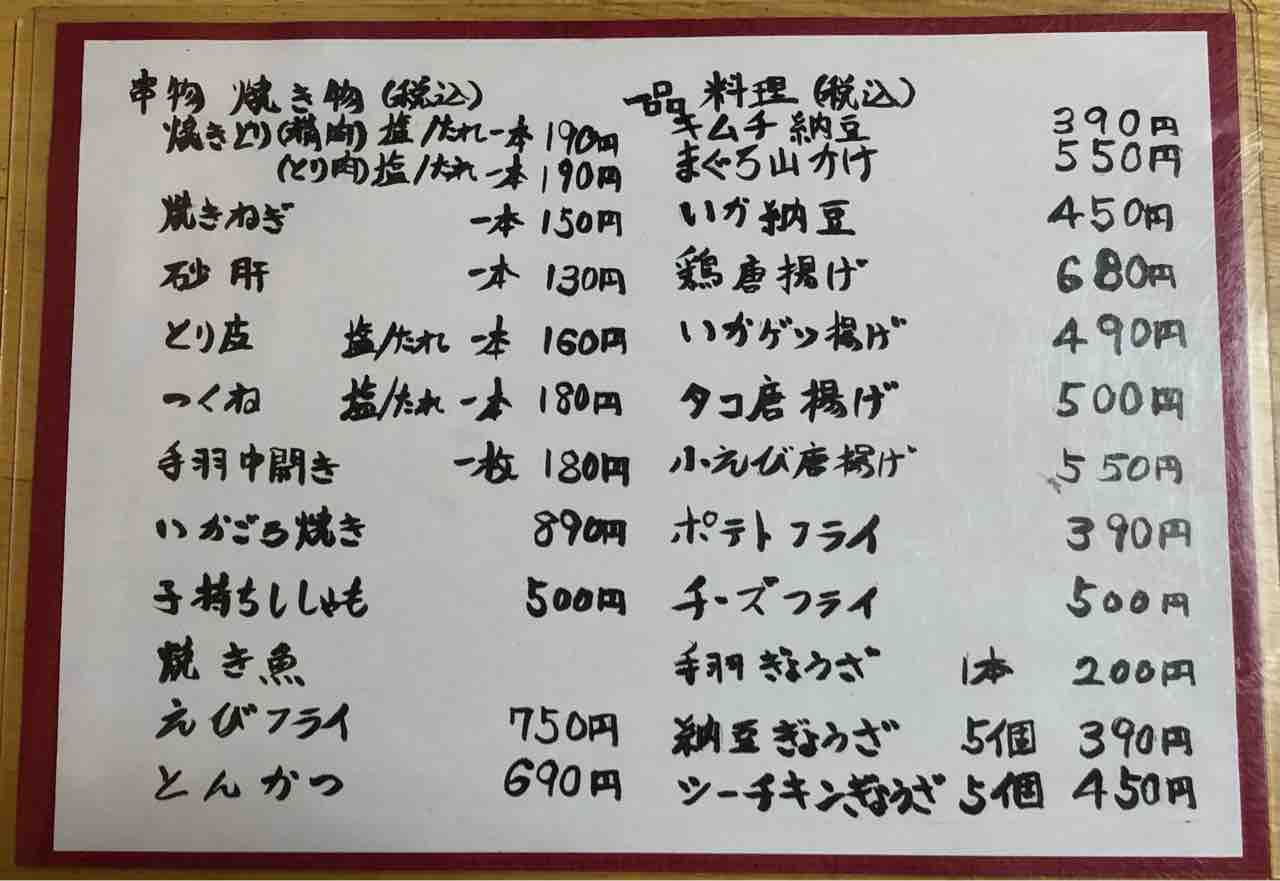 串物 焼き物(税込)
焼きとり(精肉)塩/たれ 一本 190円
(とり肉)塩/たれ 一本 190円
焼きねぎ 一本 150円
砂肝 一本 130円
とり皮 塩/たれ 一本 160円
つくね 塩/たれ 一本 180円
手羽中開き 一枚 180円
いかごろ焼き 890円
子持ちししゃも 500円
焼き魚
えびフライ 750円
とんかつ 690円
一品料理(税込)
キムチ納豆 390円
まぐろ山かけ 550円
いか納豆 450円
鶏唐揚げ 680円
いかゲソ揚げ 490円
タコ唐揚げ 500円
小えび唐揚げ 550円
ポテトフライ 390円
チーズフライ 500円
手羽ぎょうざ 1本 200円
納豆ぎょうざ 5個 390円
ツーチキンぎょうざ 5個 450円